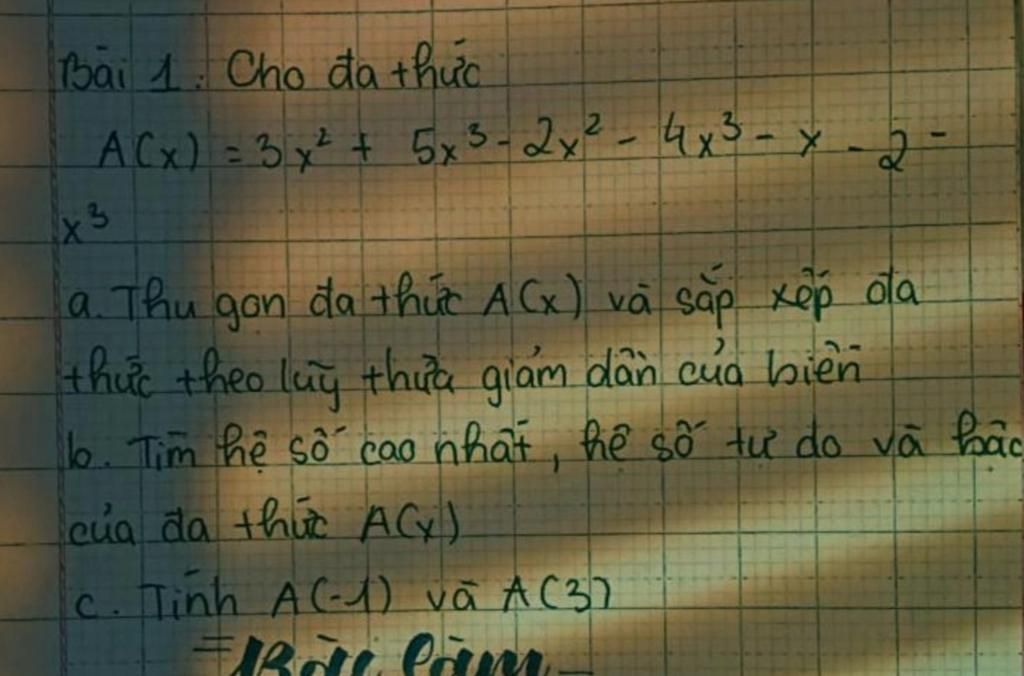 Bài 1: Cho đa thức
A(x) = 3x² + 5x³ - 2x² - 4x³ - x - 2 -
x³
a. Thu gọn đa thức A(x) và sắp xếp đa
thức theo luỹ thừa giảm dần của biến
b. Tìm hệ số cao nhất, hệ số tự do và bậc
của đa thức A(x)
c. Tính A(-1) và A(3)
=Bài làm=